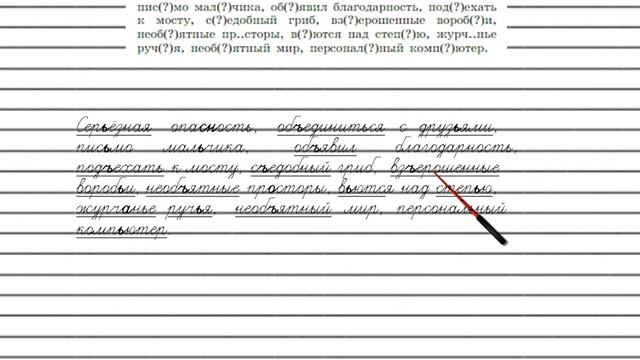 пис(?)мо мал(?)чика, об(?)явил благодарность, под(?)ехать
к мосту, с(?)едобный гриб, вз(?)ерошенные вороб(?)и,
необ(?)ятные пр..сторы, в(?)ются над степ(?)ю, журч..нье
руч(?)я, необ(?)ятный мир, персонал(?)ный комп(?)ютер.
Серьёзная опасность, объединиться с друзьями,
письмо мальчика, объявил благодарность,
подъехать к мосту, съедобный гриб, взъерошенные
воробьи, необъятные просторы, вьются над степью,
журчанье ручья, необъятный мир, персональный
компьютер.